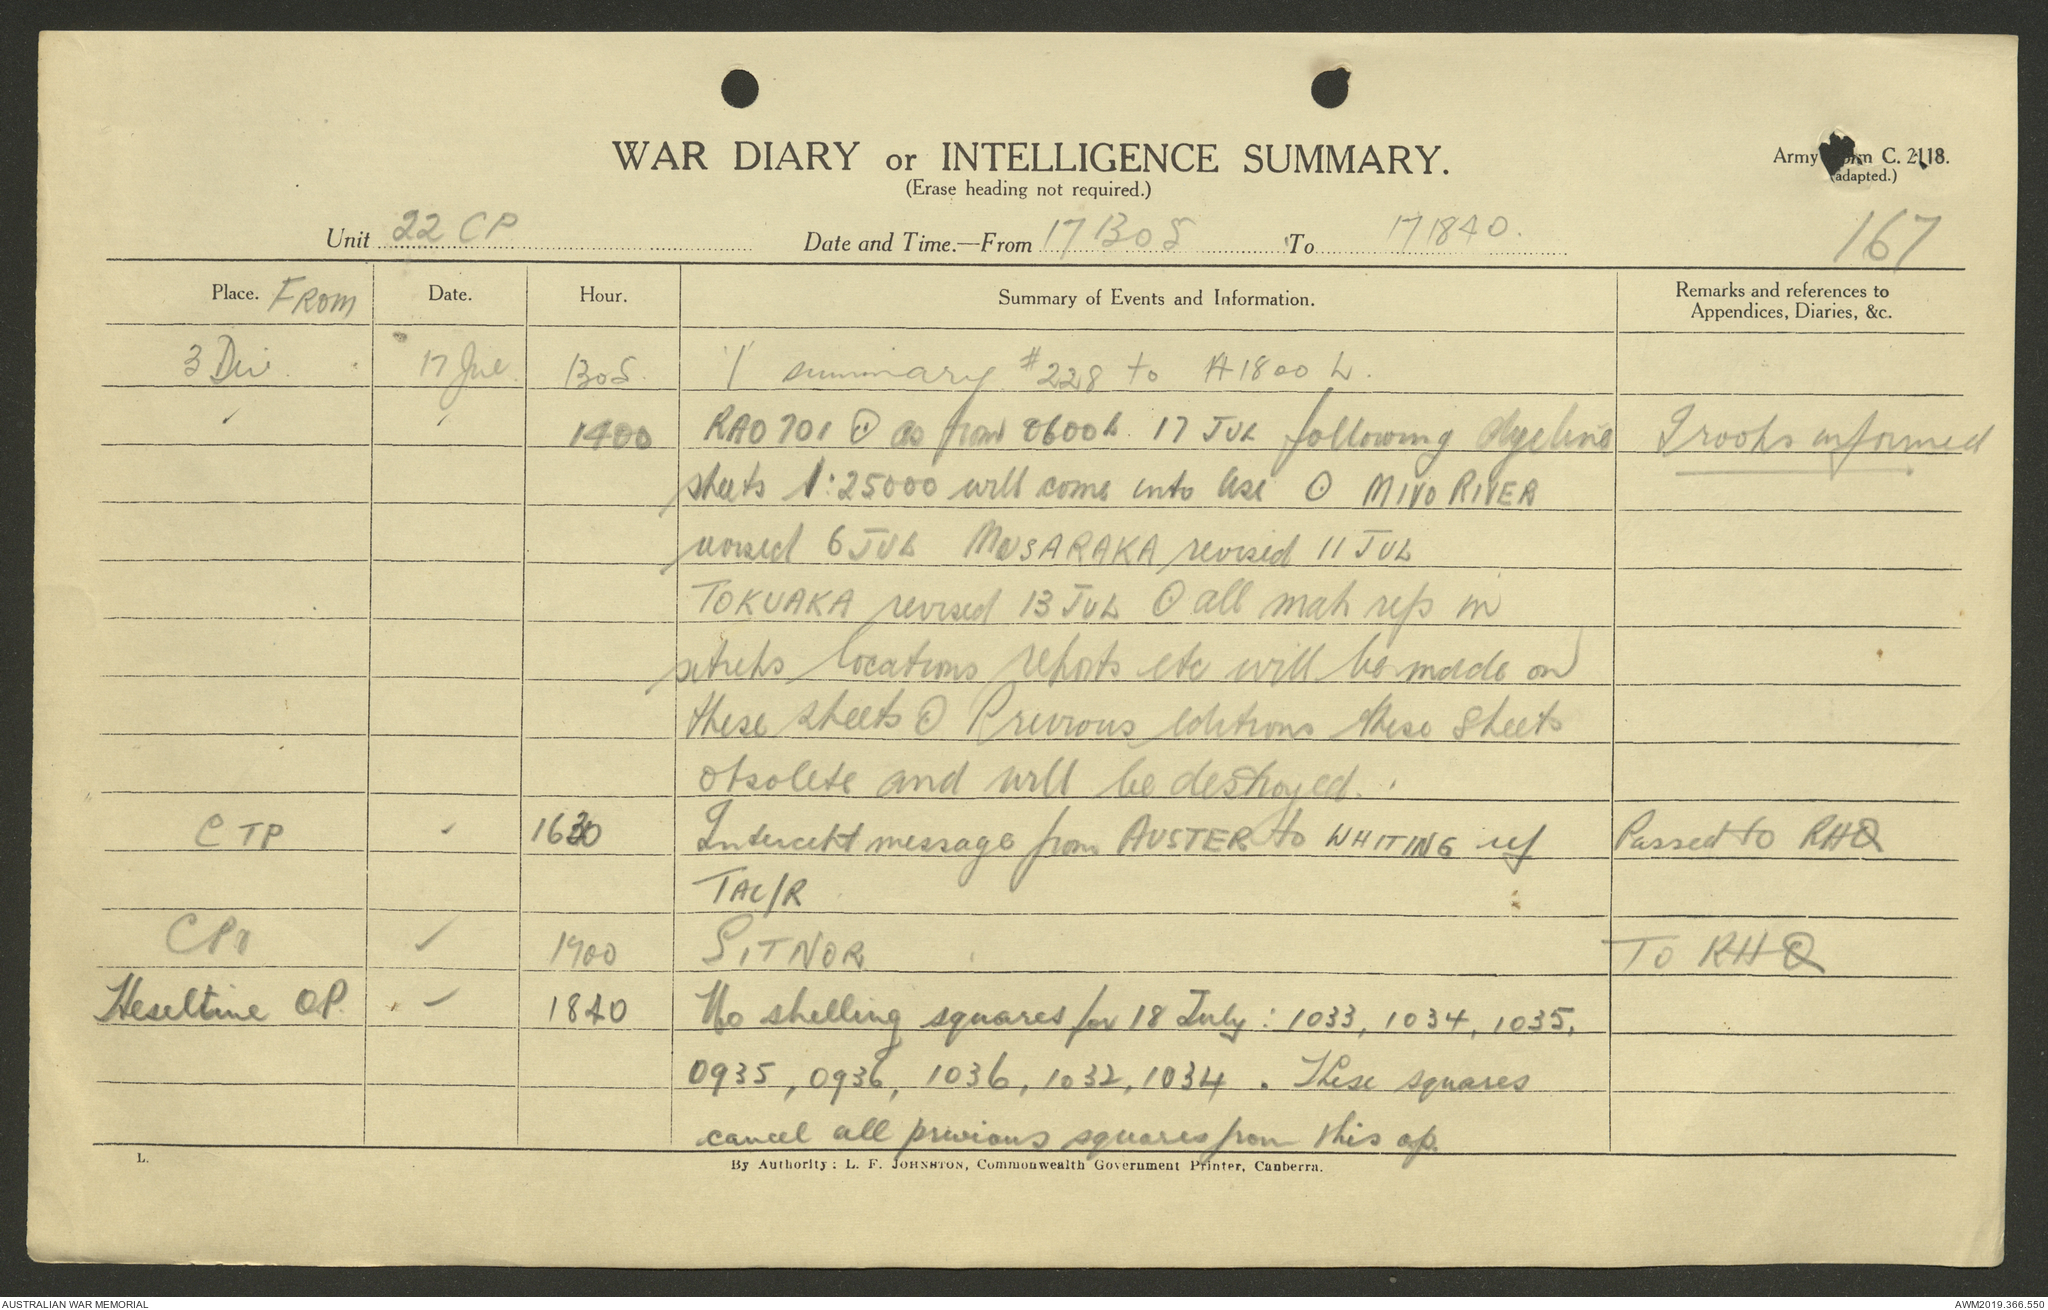 WAR DIARY or INTELLIGENCE SUMMARY.
(Erase heading not required.)
Army Form C. 2118.
(adapted.)
Unit 22 CP Date and Time.—From 171305 To 171840.
167
Place. FROM Date. Hour. Summary of Events and Information. Remarks and references to Appendices, Diaries, &c.
3 Div 17 Jul 1305 I summary #228 to 1800 L.
" " 1400 RAO 701 ⊙ as from 0600L 17 JUL following dyeline Troops informed
sheets 1:25000 will come into use ⊙ MIVO RIVER
revised 6 JUL MUSARAKA revised 11 JUL
TOKUAKA revised 13 JUL ⊙ all map refs in
sitreps locations reports etc will be made on
these sheets ⊙ Previous editions these sheets
obsolete and will be destroyed.
C TP " 1630 Intercept message from AUSTER to WHITING ref Passed to RHQ
TAC/R
" 1700 SITNOR TO RHQ
Heseltine OP. " 1840 No shelling squares for 18 July: 1033, 1034, 1035,
0935, 0936, 1036, 1032, 1034. These squares
cancel all previous squares from this op.
L.
By Authority: L. F. JOHNSTON, Commonwealth Government Printer, Canberra.
AUSTRALIAN WAR MEMORIAL
AWM2019.366.550